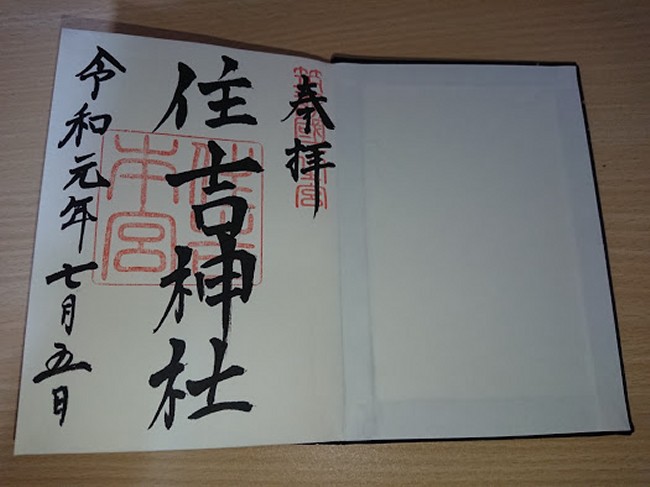 奉拝
住吉神社
本宮
令和元年七月五日